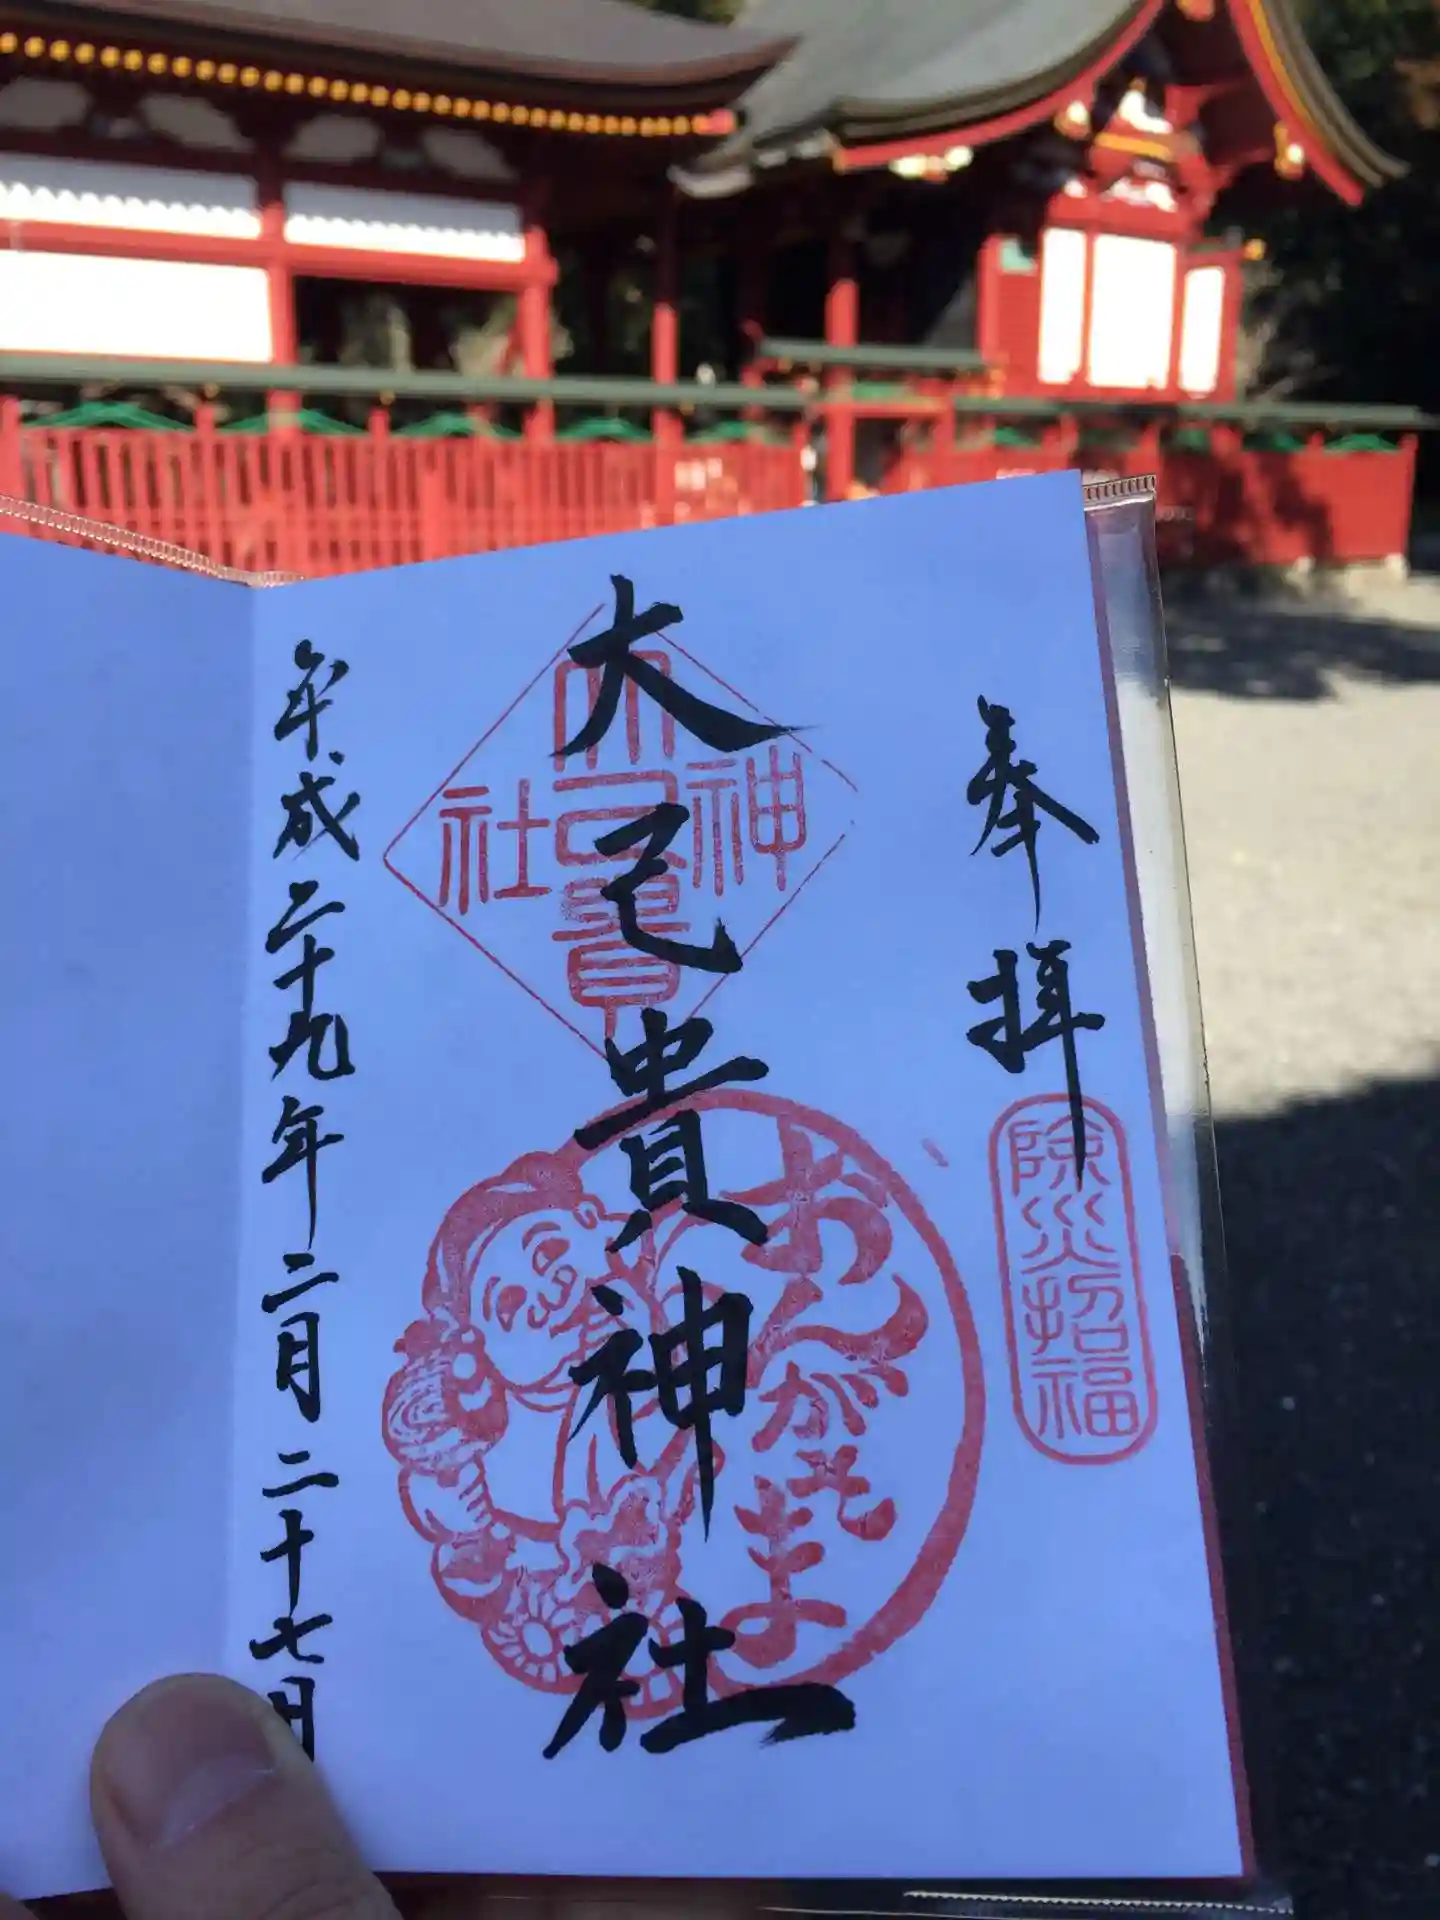 奉拝
除災招福
大己貴神社
大己貴
神社
おんがさま
平成二十九年二月二十七日